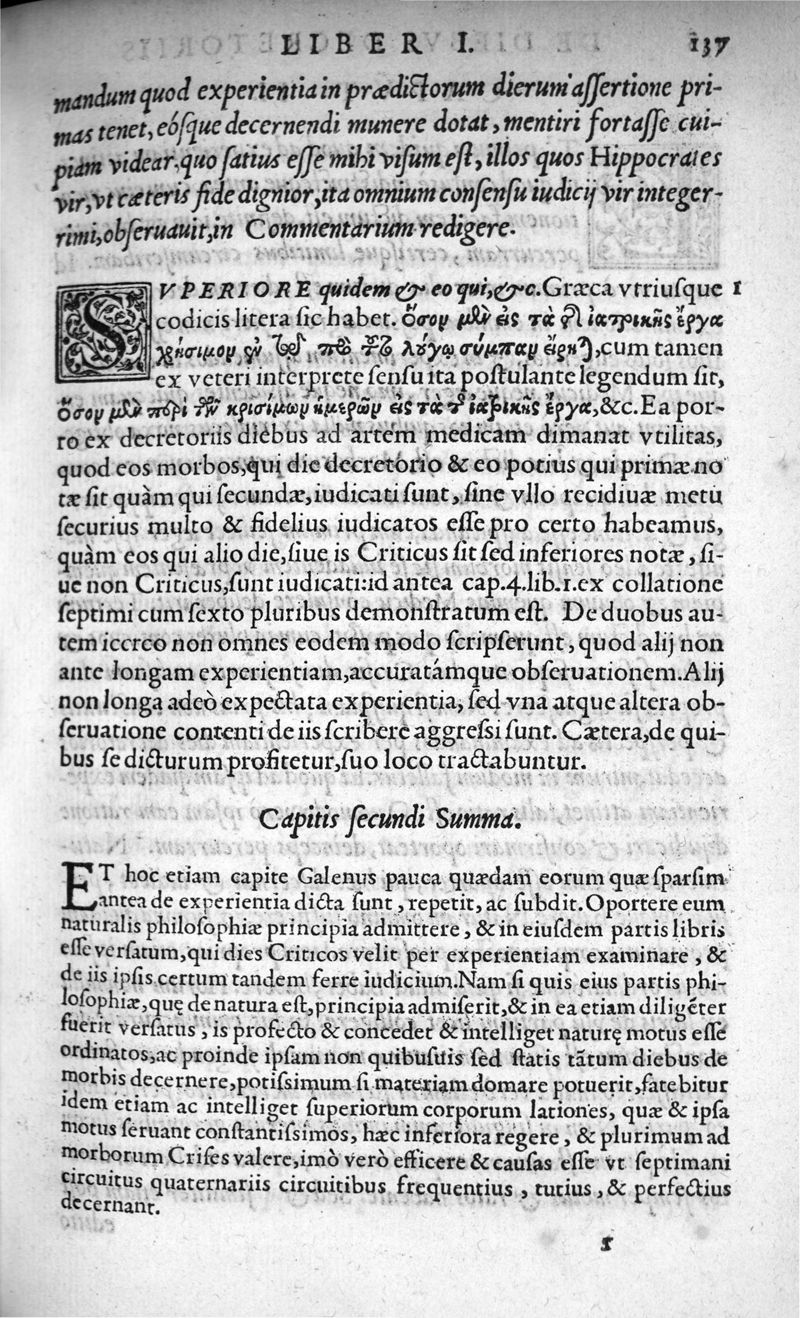 LIBER I. 137
mandum quod experientia in prædictorum dierum assertione pri-
mas tenet, eósque decernendi munere dotat, mentiri fortasse cui-
piam videar, quo satius esse mihi visum est, illos quos Hippocrates
vir, vt cæteris fide dignior, ita omnium consensu iudicij vir integer-
rimi, obseruauit, in Commentarium redigere.
SVPERIORE quidem & eo qui, &c. Græca vtriusque 1
codicis litera sic habet. ὅσον μὲν εἰς τὰ τῆς ἰατρικῆς ἔργα
χρήσιμον λόγῳ σύμπαν εἴρηται, cum tamen
ex veteri interprete sensu ita postulante legendum sit,
ὅσον μὲν περὶ τῶν κρισίμων ἡμερῶν εἰς τὰ τῆς ἰατρικῆς ἔργα, &c. Ea por-
ro ex decretoriis diebus ad artem medicam dimanat vtilitas,
quod eos morbos, qui die decretorio & eo potius qui primæ no
tæ sit quàm qui secundæ, iudicati sunt, sine vllo recidiuæ metu
securius multo & fidelius iudicatos esse pro certo habeamus,
quàm eos qui alio die, siue is Criticus sit sed inferiores notæ, si-
ue non Criticus, sunt iudicati: id antea cap. 4. lib. 1. ex collatione
septimi cum sexto pluribus demonstratum est. De duobus au-
tem iccrco non omnes eodem modo scripserunt, quod alij non
ante longam experientiam, accuratámque obseruationem. Alij
non longa adeò expectata experientia, sed vna atque altera ob-
seruatione contenti de iis scribere aggressi sunt. Cætera, de qui-
bus se dicturum profitetur, suo loco tractabuntur.
Capitis secundi Summa.
ET hoc etiam capite Galenus pauca quædam eorum quæ sparsim
antea de experientia dicta sunt, repetit, ac subdit. Oportere eum
naturalis philosophiæ principia admittere, & in eiusdem partis libris
esse versatum, qui dies Criticos velit per experientiam examinare, &
de iis ipsis certum tandem ferre iudicium. Nam si quis eius partis phi-
losophiæ, quę de natura est, principia admiserit, & in ea etiam diligẽter
fuerit versatus, is profecto & concedet & intelliget naturę motus esse
ordinatos, ac proinde ipsam non quibusuis sed statis tãtum diebus de
morbis decernere, potissimum si materiam domare potuerit, fatebitur
idem etiam ac intelliget superiorum corporum lationes, quæ & ipsa
motus seruant constantissimos, hæc inferiora regere, & plurimum ad
morborum Crises valere, imò verò efficere & causas esse vt septimani
circuitus quaternariis circuitibus frequentius, tutius, & perfectius
decernant.